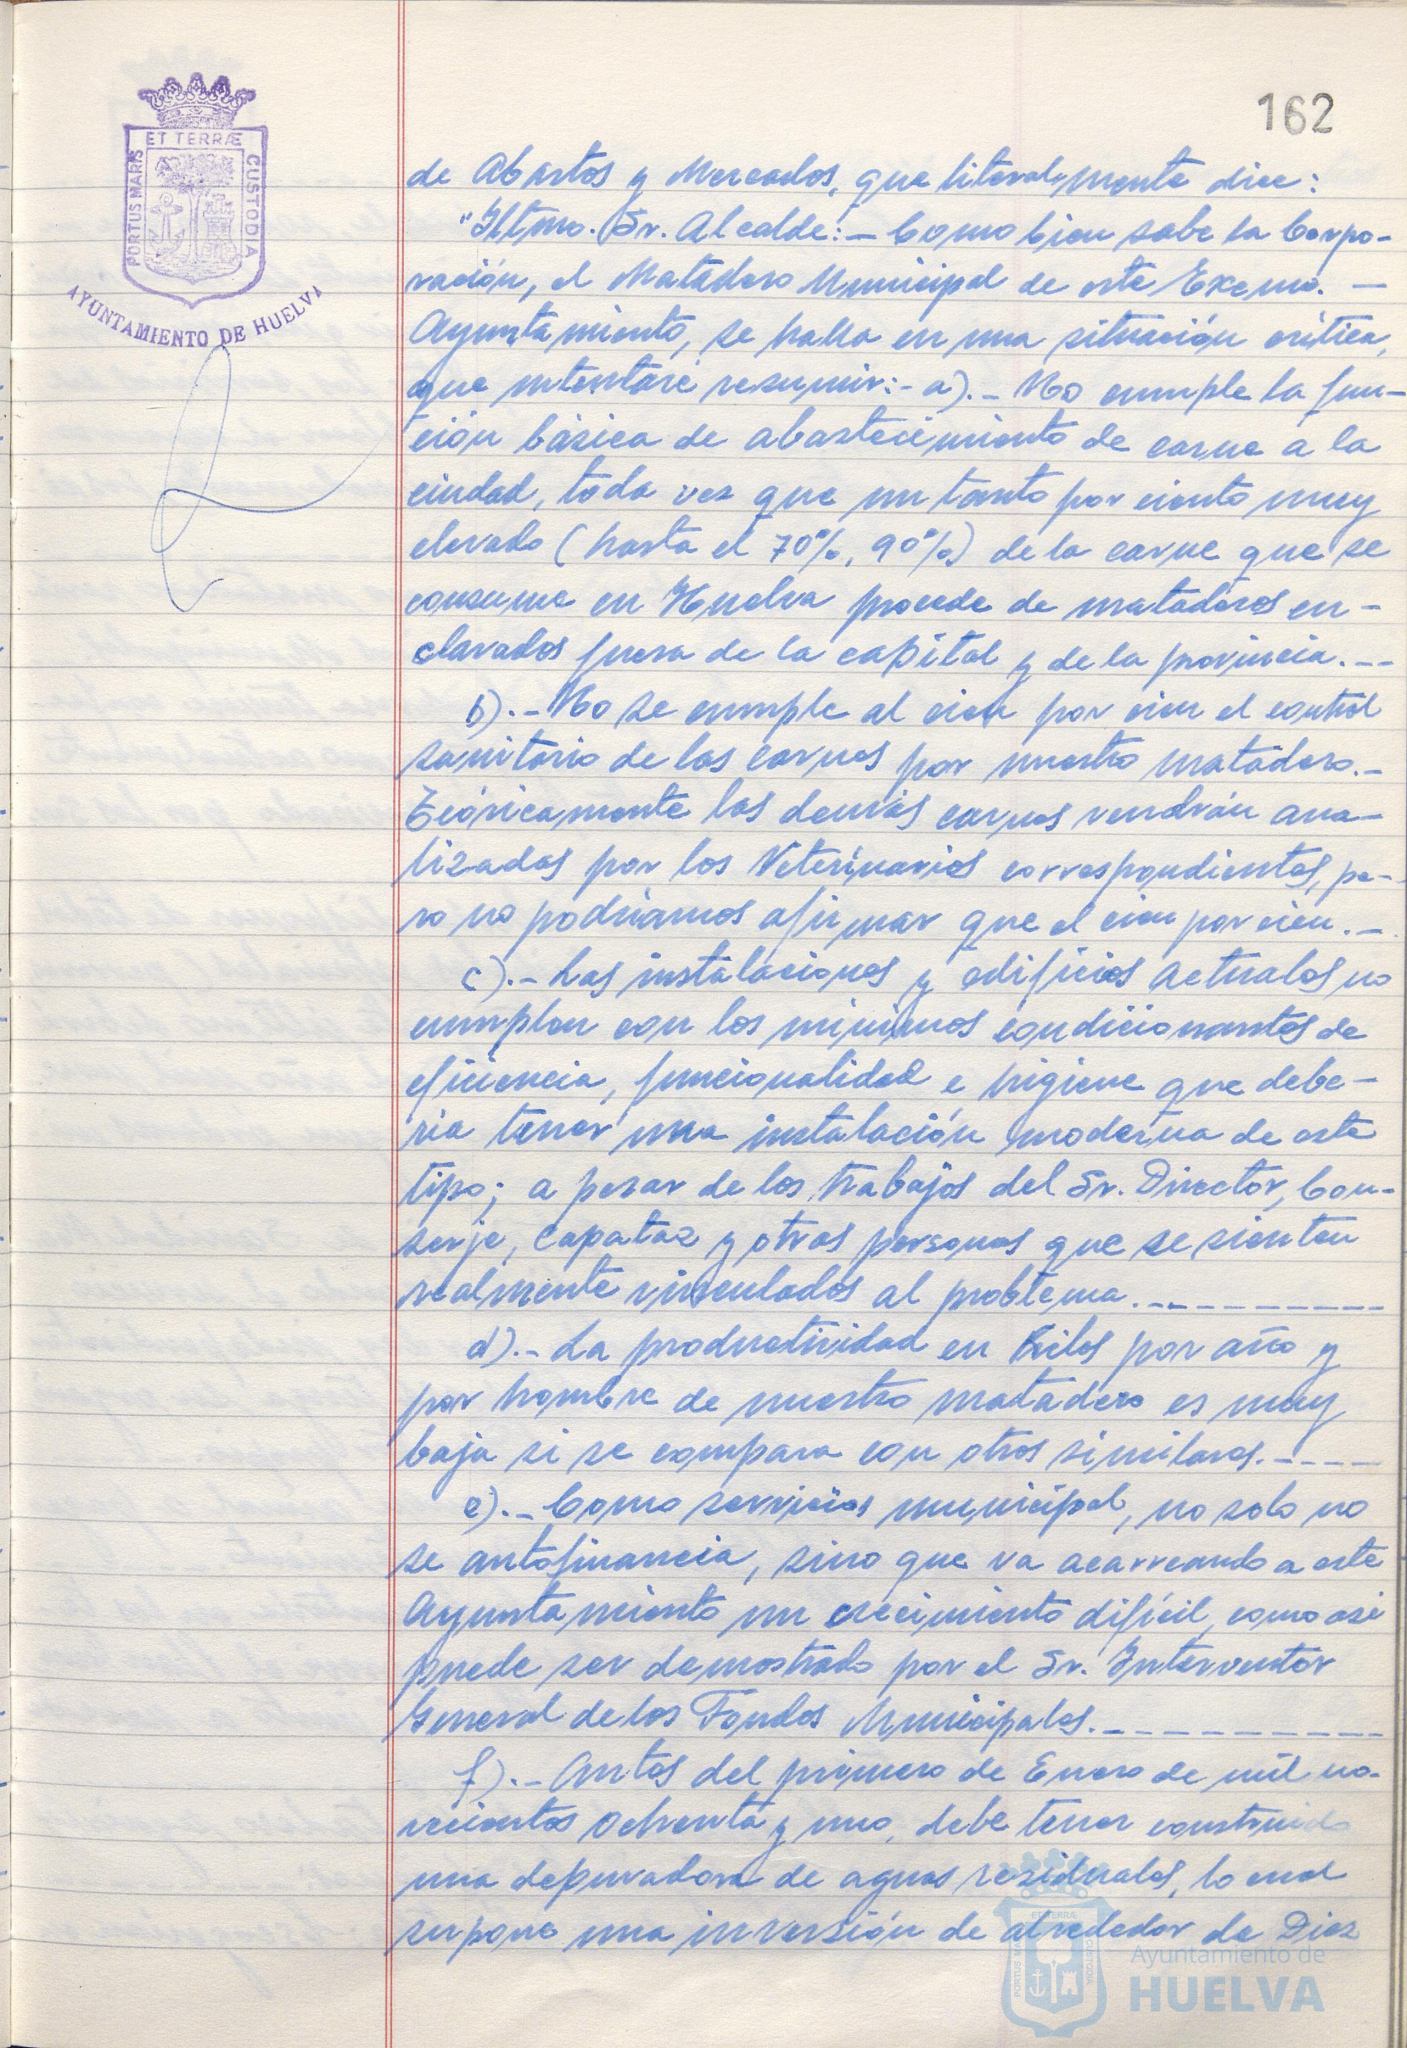 162
ET TERRÆ
PORTUS MARIS
CUSTODIA
AYUNTAMIENTO DE HUELVA
de Abastos y Mercados, que literalmente dice:
"Iltmo. Sr. Alcalde:- Como bien sabe la Corpo-
ración, el Matadero Municipal de este Excmo. -
Ayuntamiento, se halla en una situación crítica,
que intentaré resumir:- a).- No cumple la fun-
ción básica de abastecimiento de carne a la
ciudad, toda vez que un tanto por ciento muy
elevado (hasta el 70%, 90%) de la carne que se
consume en Huelva procede de mataderos en-
clavados fuera de la capital y de la provincia.--
b).- No se cumple al cien por cien el control
sanitario de las carnes por nuestro matadero.-
Teóricamente las demás carnes vendrán ana-
lizadas por los Veterinarios correspondientes, pe-
ro no podríamos afirmar que el cien por cien.-
c).- Las instalaciones y edificios actuales no
cumplen con los mínimos condicionantes de
eficiencia, funcionalidad e higiene que debe-
ría tener una instalación moderna de este
tipo; a pesar de los trabajos del Sr. Director, Con-
serje, Capataz y otras personas que se sienten
realmente vinculados al problema.----------
d).- La productividad en kilos por año y
por hombre de nuestro matadero es muy
baja si se compara con otros similares.-----
e).- Como servicios municipal, no solo no
se autofinancia, sino que va acarreando a este
Ayuntamiento un crecimiento difícil, como así
puede ser demostrado por el Sr. Interventor
General de los Fondos Municipales.-----------
f).- Antes del primero de Enero de mil no-
vecientos ochenta y uno, debe tener construida
una depuradora de aguas residuales, lo cual
supone una inversión de alrededor de Diez
ET TERRÆ
Ayuntamiento de
HUELVA